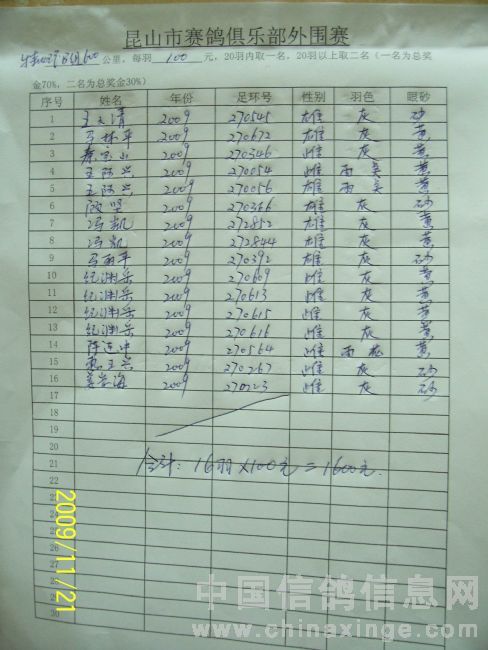 昆山市赛鸽俱乐部外围赛
600 公里，每羽 100 元，20羽内取一名，20羽以上取二名（一名为总奖
金70%，二名为总奖金30%）
序号 姓名 年份 足环号 性别 羽色 眼砂
1 2009 270545 雄 灰 砂
2 2009 270672 雄 灰 黄
3 2009 270346 雌 灰 黄
4 王阿兴 2009 270054 雌 雨 黄
5 王阿兴 2009 270056 雄 雨 黄
6 2009 270366 雄 灰 砂
7 冯凯 2009 272852 雄 灰 黄
8 冯凯 2009 272844 雄 灰 黄
9 2009 270392 雄 灰 砂
10 纪渊岳 2009 270609 雌 灰 黄
11 纪渊岳 2009 270613 雌 灰 黄
12 纪渊岳 2009 270615 雌 灰 黄
13 纪渊岳 2009 270616 雌 灰 黄
14 陈连中 2009 270564 雌 雨花 黄
15 2009 270267 雌 灰 砂
16 2009 270223 雌 灰 砂
17
18
19
20
21 合计：16羽×100元=1600元.
22
23
24
25
26
27
28
29
30
2009/11/21
中国信鸽信息网
www.chinaxinge.com